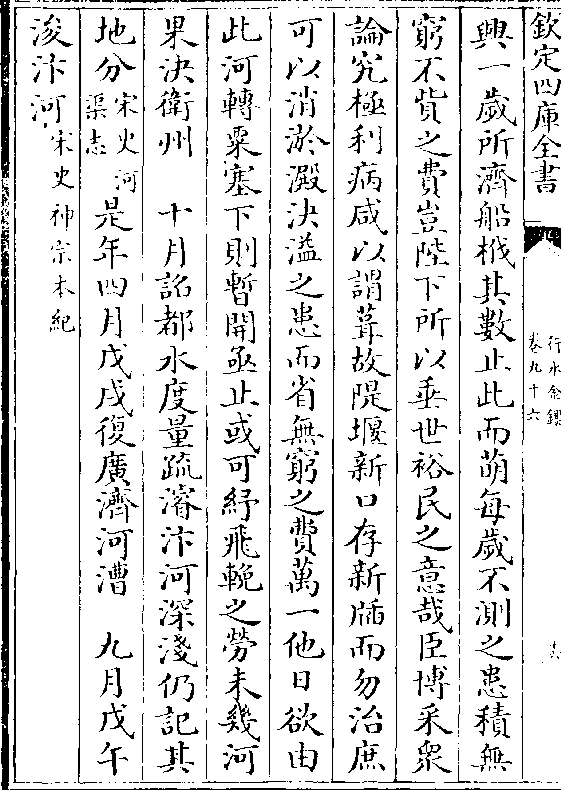 欽定四庫全書
行水金鑑
卷九十六
興一歲所濟船栰其數止此而萌每歲不測之患積無
窮不貲之費豈陛下所以垂世裕民之意哉臣博采衆
論究極利病咸以謂葺故隄堰新口存新牐而勿治庶
可以消淤澱決溢之患而省無窮之費萬一他日欲由
此河轉粟塞下則暫開亟止或可紓飛輓之勞未幾河
果決衛州　十月詔都水度量疏濬汴河深淺仍記其
地分宋史河渠志是年四月戊戌復廣濟河漕　九月戊午
浚汴河宋史神宗本紀